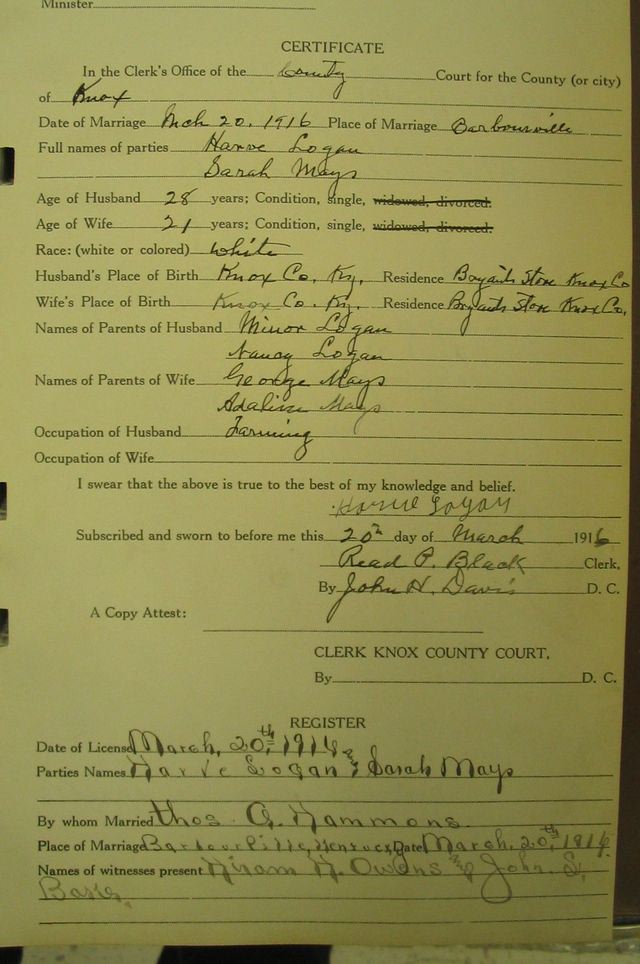 Minister
CERTIFICATE
In the Clerk's Office of the County Court for the County (or city)
of Knox
Date of Marriage Mch 20, 1916 Place of Marriage Barbourville
Full names of parties Harve Logan
Sarah Mays
Age of Husband 28 years; Condition, single, widowed, divorced.
Age of Wife 21 years; Condition, single, widowed, divorced.
Race: (white or colored) white
Husband's Place of Birth Knox Co. Ky. Residence Bryants Store Knox Co
Wife's Place of Birth Knox Co. Ky. Residence Bryants Store Knox Co.
Names of Parents of Husband Minor Logan
Nancy Logan
Names of Parents of Wife George Mays
Adaline Mays
Occupation of Husband Farming
Occupation of Wife
I swear that the above is true to the best of my knowledge and belief.
Logan
Subscribed and sworn to before me this 20th day of March 1916
Read P. Black Clerk.
By John H. Davis D. C.
A Copy Attest:
CLERK KNOX COUNTY COURT.
By D. C.
REGISTER
Date of License March, 20th, 1916
Parties Names Harve Logan & Sarah Mays
By whom Married Thos. G. Hammons
Place of Marriage Barbourville, Kentucky Date March, 20th, 1916
Names of witnesses present Hiram H. Owens & John